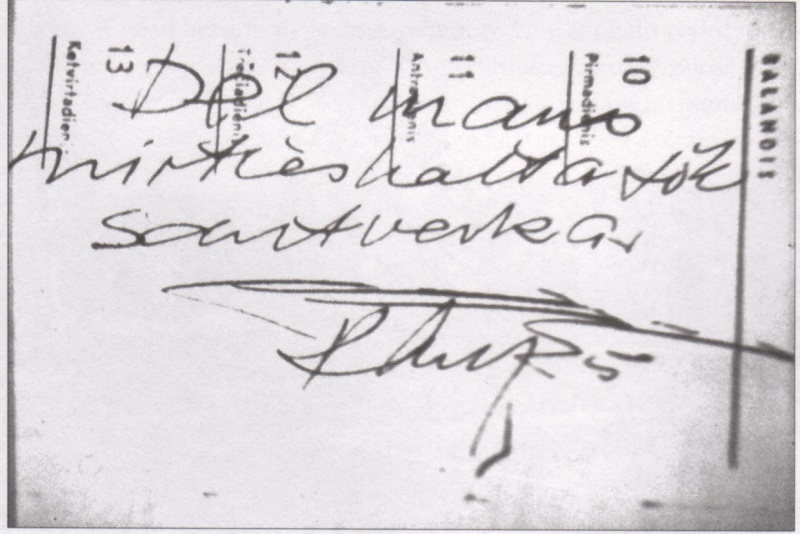 BALANDIS
10
Pirmadienis
11
Antradienis
12
Trečiadienis
13
Ketvirtadien
Dėl mano
mirties kalta tik
santvarka